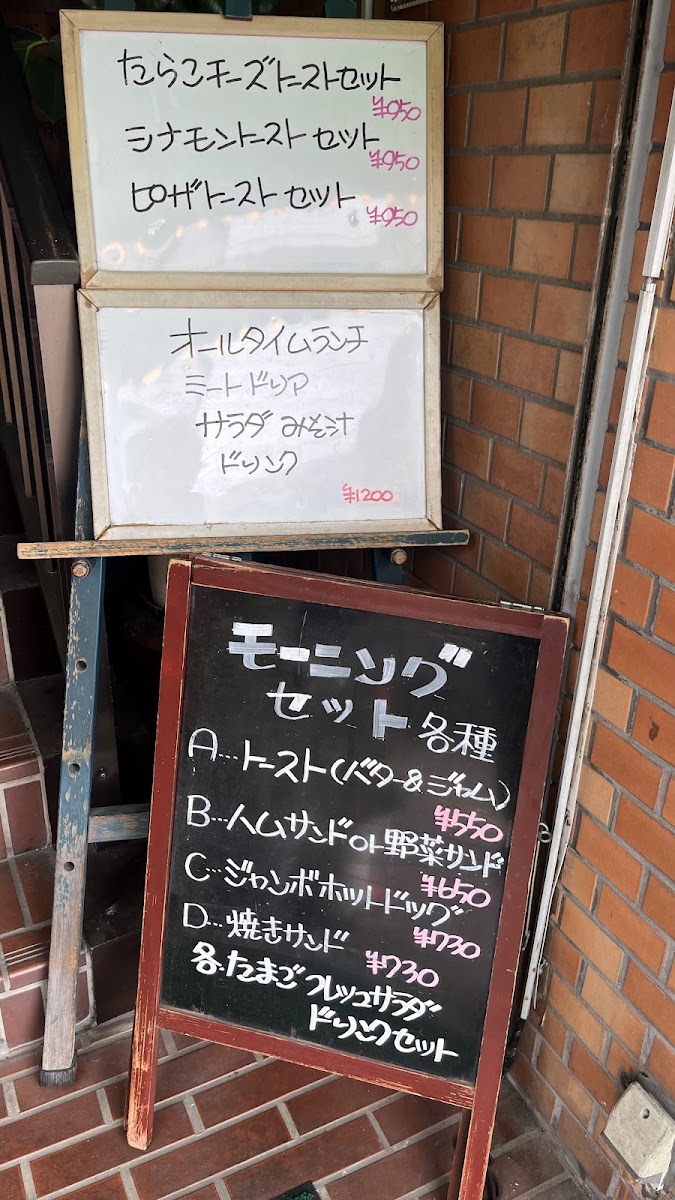 たらこチーズトーストセット
¥950
シナモントーストセット
¥950
ピザトーストセット
¥950
オールタイムランチ
ミートドリア
サラダ みそ汁
ドリンク
¥1200
モーニング
セット各種
A…トースト(バター&ジャム)
¥550
B…ハムサンドor野菜サンド
¥650
C…ジャンボホットドッグ
¥730
D…焼きサンド
¥730
各.たまごフレッシュサラダ
ドリンクセット